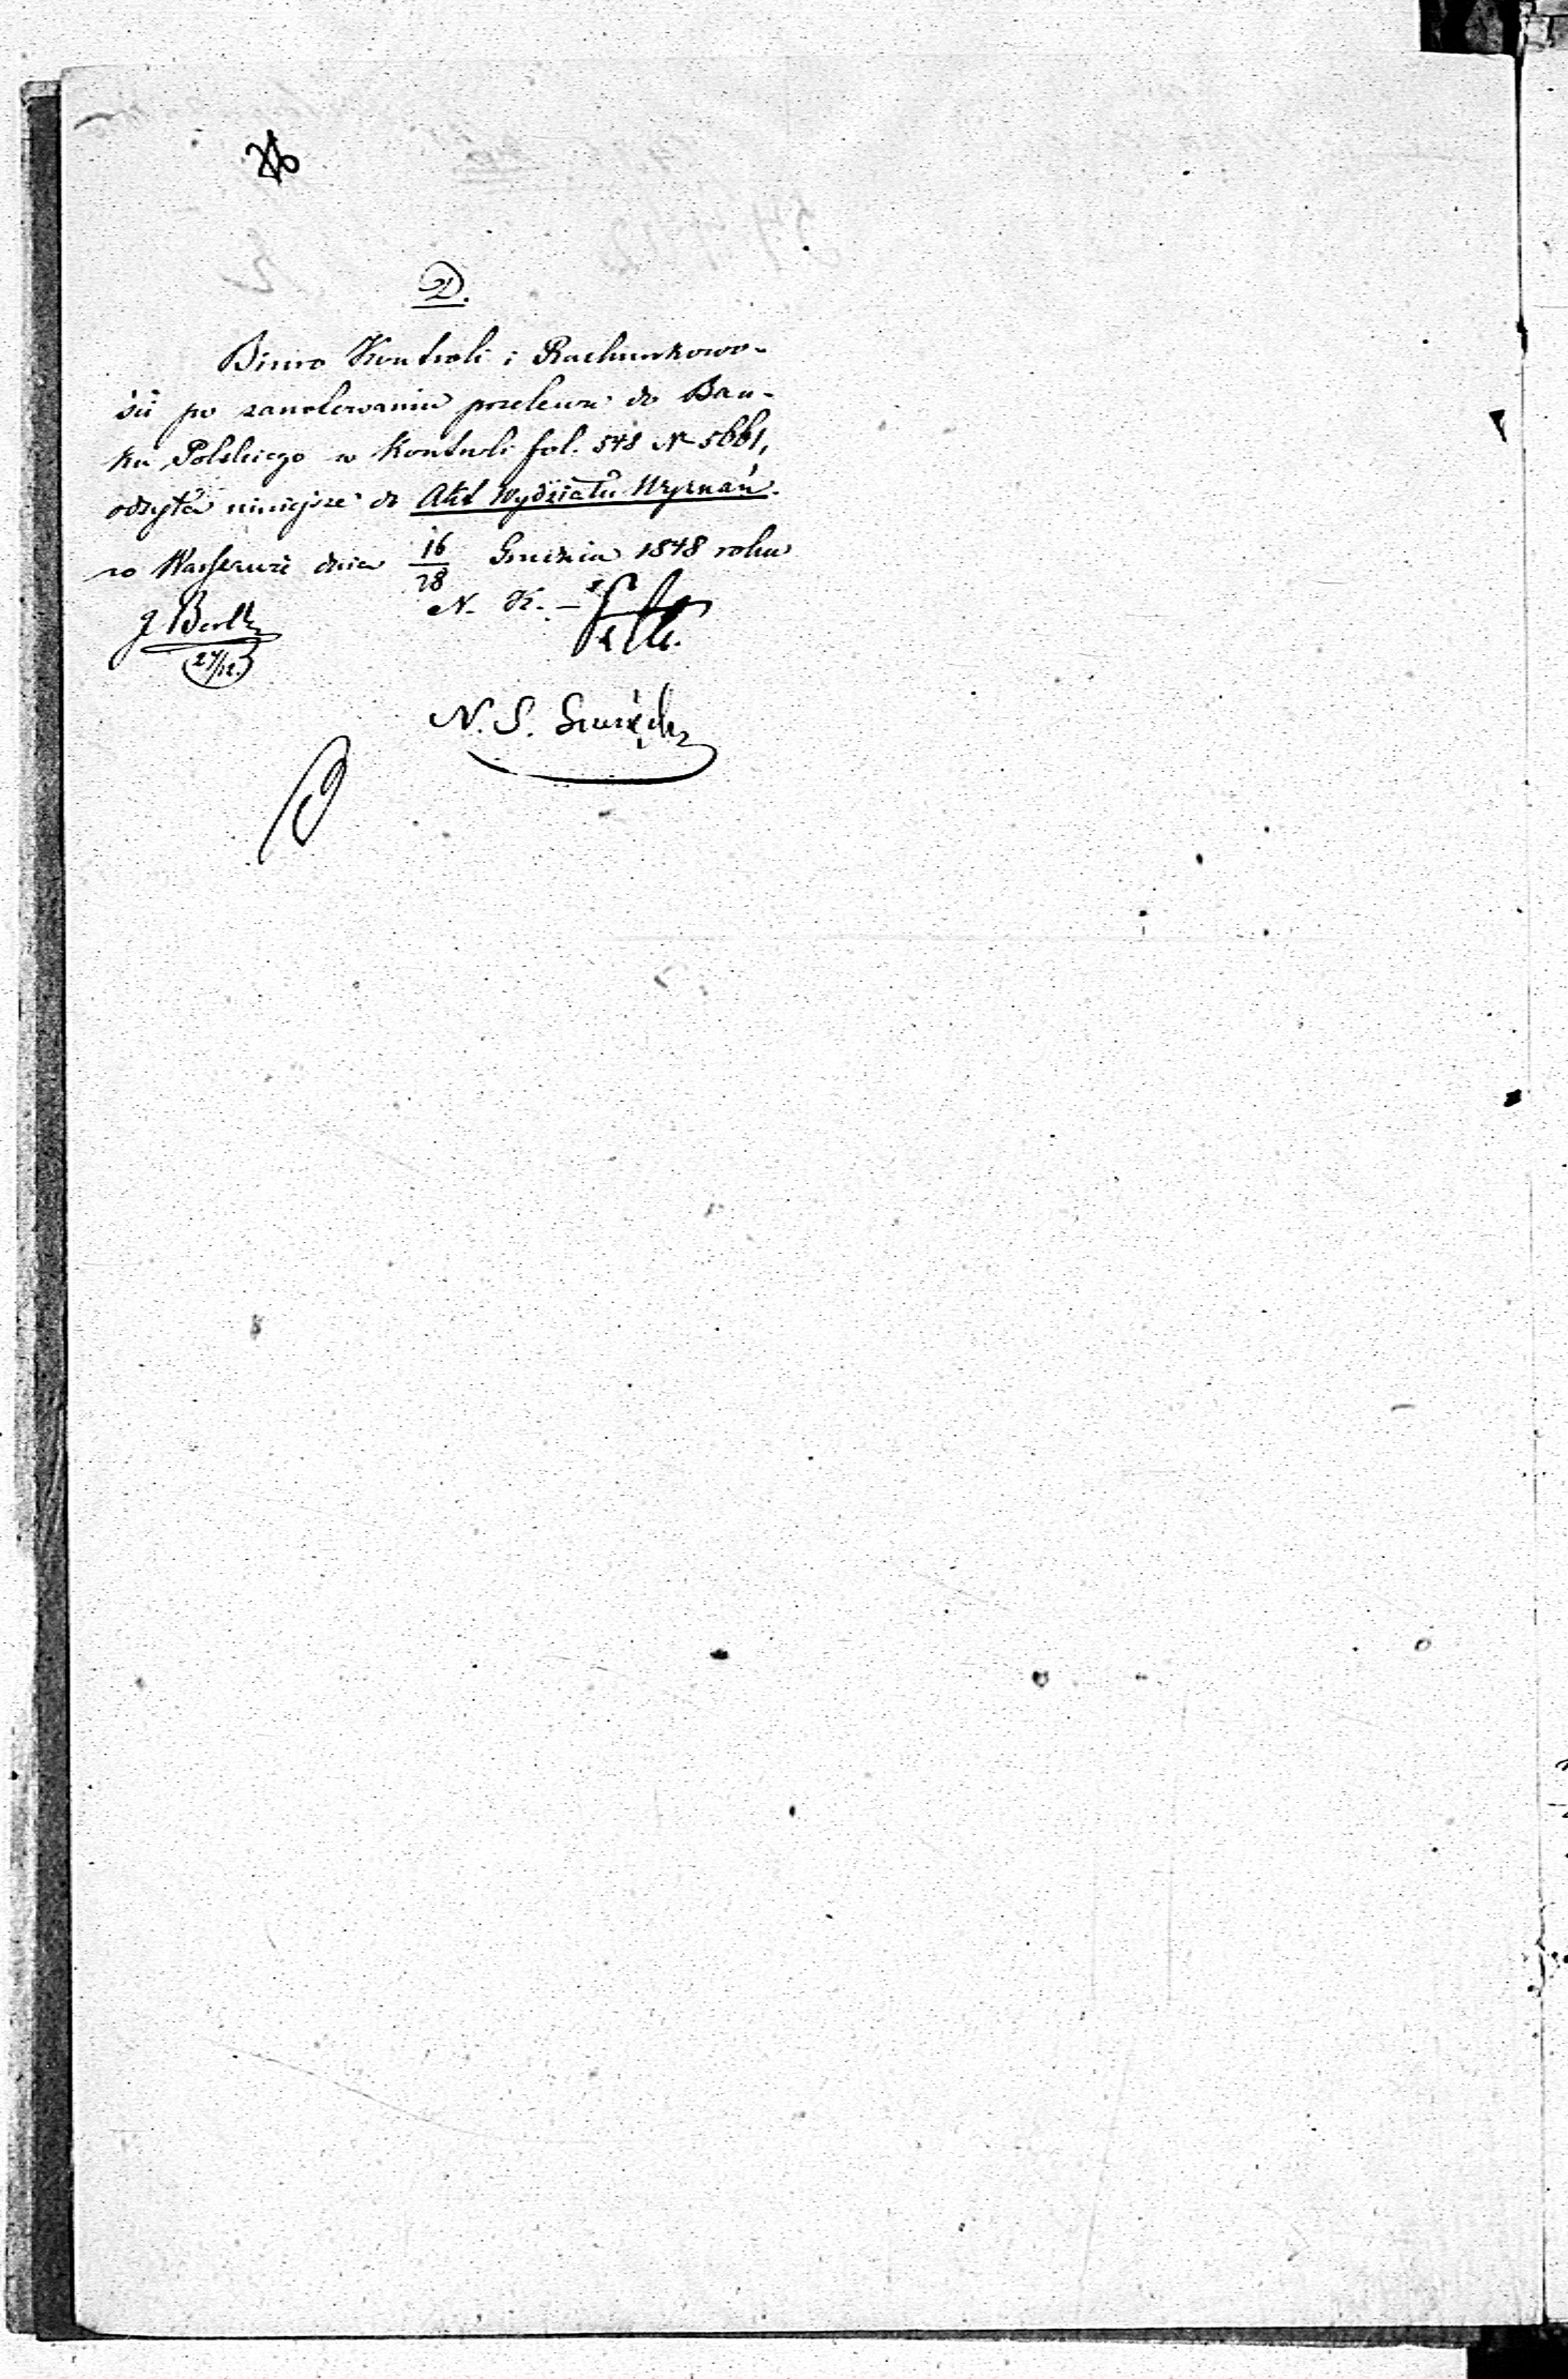 D.
Biuro Kontroli i Rachunkowo-
ści po zanotowaniu przelewu do Ban-
ku Polskiego w Kontroli fol. 548 N 5661,
odsyła niniejsze do Akt Wydziału Wyznań.
w Warszawie dnia 16/28 Grudnia 1848 roku
N. K. -
27/12.
N. S.